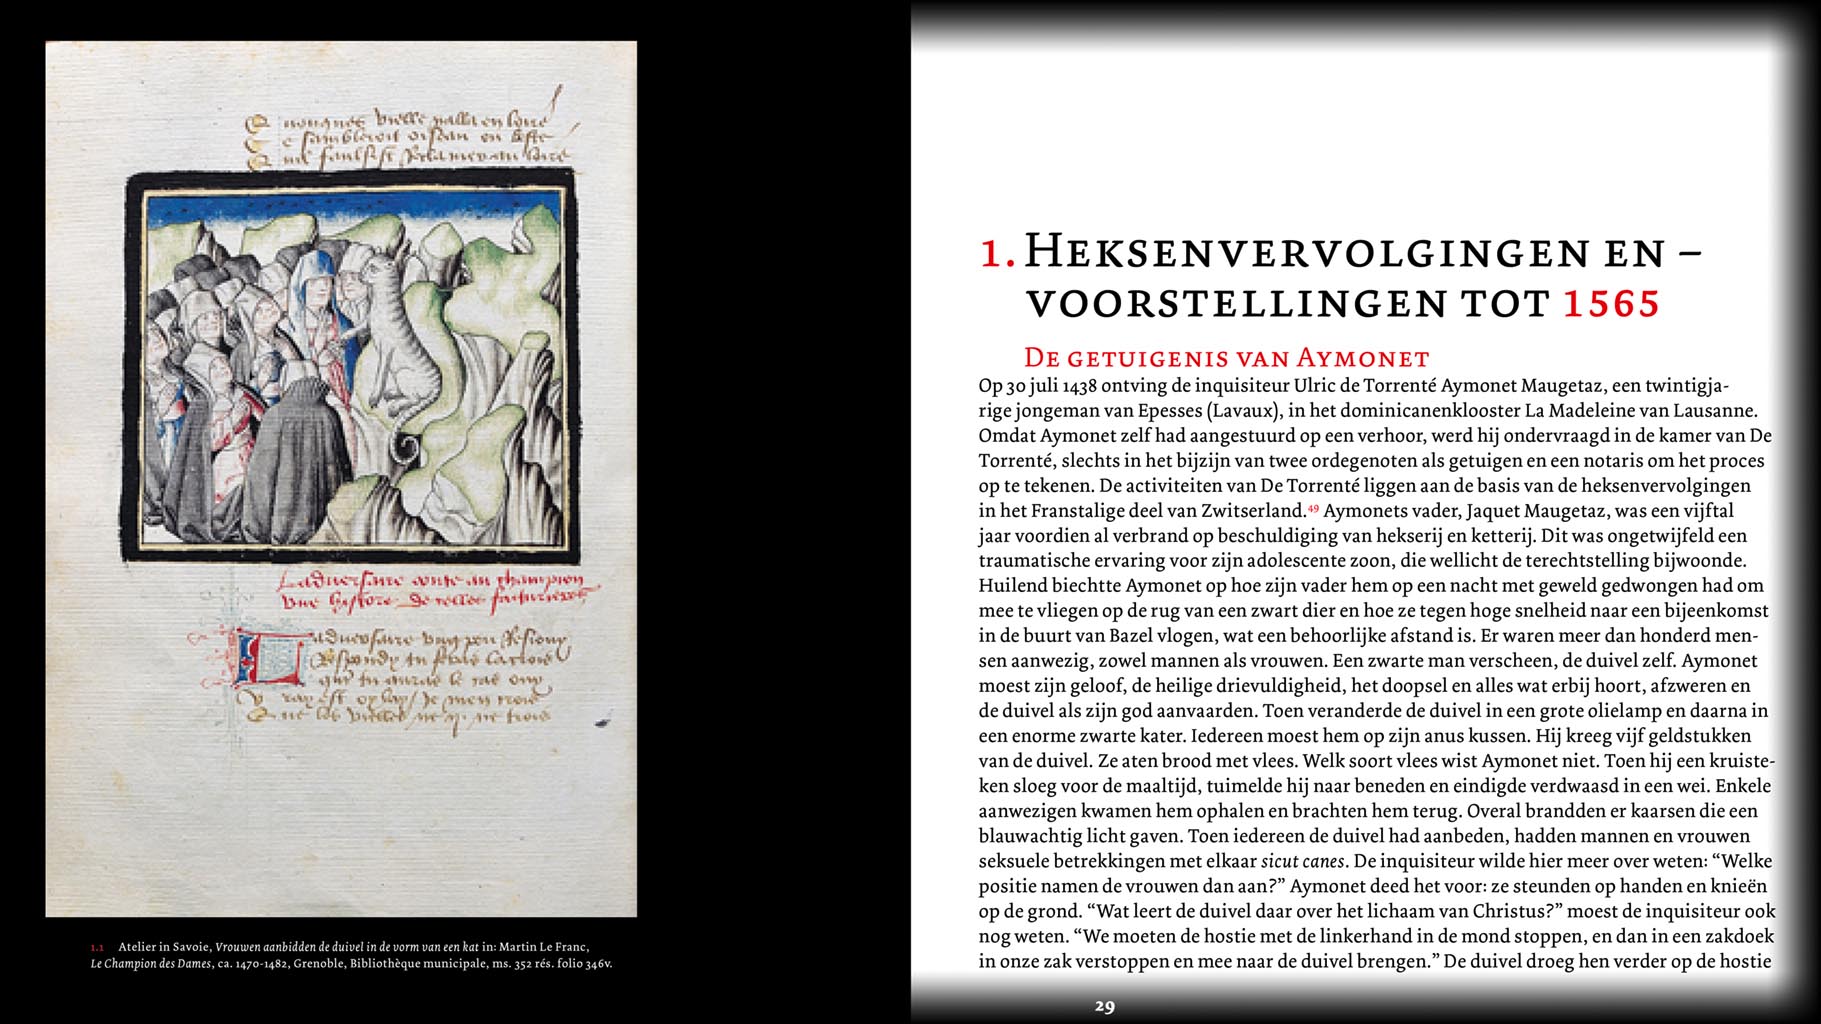 vne histore de telles facturieres
1.1 Atelier in Savoie, Vrouwen aanbidden de duivel in de vorm van een kat in: Martin Le Franc,
Le Champion des Dames, ca. 1470-1482, Grenoble, Bibliothèque municipale, ms. 352 rés. folio 346v.
1. Heksenvervolgingen en –
voorstellingen tot 1565
De getuigenis van Aymonet
Op 30 juli 1438 ontving de inquisiteur Ulric de Torrenté Aymonet Maugetaz, een twintigja-
rige jongeman van Epesses (Lavaux), in het dominicanenklooster La Madeleine van Lausanne.
Omdat Aymonet zelf had aangestuurd op een verhoor, werd hij ondervraagd in de kamer van De
Torrenté, slechts in het bijzijn van twee ordegenoten als getuigen en een notaris om het proces
op te tekenen. De activiteiten van De Torrenté liggen aan de basis van de heksenvervolgingen
in het Franstalige deel van Zwitserland.49 Aymonets vader, Jaquet Maugetaz, was een vijftal
jaar voordien al verbrand op beschuldiging van hekserij en ketterij. Dit was ongetwijfeld een
traumatische ervaring voor zijn adolescente zoon, die wellicht de terechtstelling bijwoonde.
Huilend biechtte Aymonet op hoe zijn vader hem op een nacht met geweld gedwongen had om
mee te vliegen op de rug van een zwart dier en hoe ze tegen hoge snelheid naar een bijeenkomst
in de buurt van Bazel vlogen, wat een behoorlijke afstand is. Er waren meer dan honderd men-
sen aanwezig, zowel mannen als vrouwen. Een zwarte man verscheen, de duivel zelf. Aymonet
moest zijn geloof, de heilige drievuldigheid, het doopsel en alles wat erbij hoort, afzweren en
de duivel als zijn god aanvaarden. Toen veranderde de duivel in een grote olielamp en daarna in
een enorme zwarte kater. Iedereen moest hem op zijn anus kussen. Hij kreeg vijf geldstukken
van de duivel. Ze aten brood met vlees. Welk soort vlees wist Aymonet niet. Toen hij een kruiste-
ken sloeg voor de maaltijd, tuimelde hij naar beneden en eindigde verdwaasd in een wei. Enkele
aanwezigen kwamen hem ophalen en brachten hem terug. Overal brandden er kaarsen die een
blauwachtig licht gaven. Toen iedereen de duivel had aanbeden, hadden mannen en vrouwen
seksuele betrekkingen met elkaar sicut canes. De inquisiteur wilde hier meer over weten: “Welke
positie namen de vrouwen dan aan?” Aymonet deed het voor: ze steunden op handen en knieën
op de grond. “Wat leert de duivel daar over het lichaam van Christus?” moest de inquisiteur ook
nog weten. “We moeten de hostie met de linkerhand in de mond stoppen, en dan in een zakdoek
in onze zak verstoppen en mee naar de duivel brengen.” De duivel droeg hen verder op de hostie
29